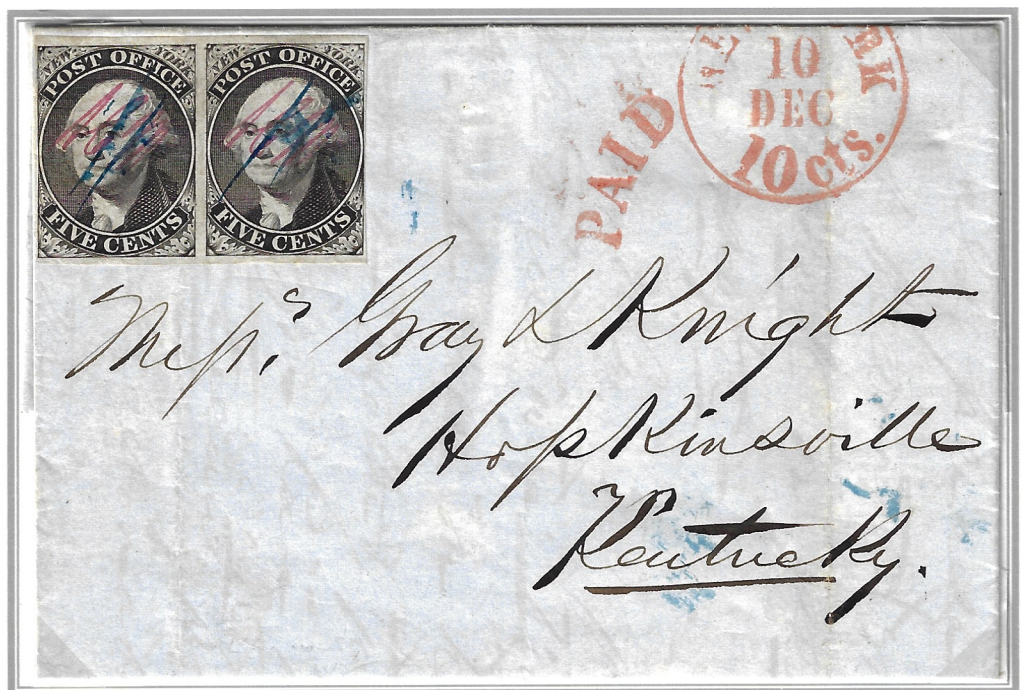 NEW YORK
POST OFFICE
FIVE CENTS
NEW YORK
POST OFFICE
FIVE CENTS
PAID
NEW YORK
10
DEC
10 cts.
Messrs. Gray & Knight
Hopkinsville
Kentucky.